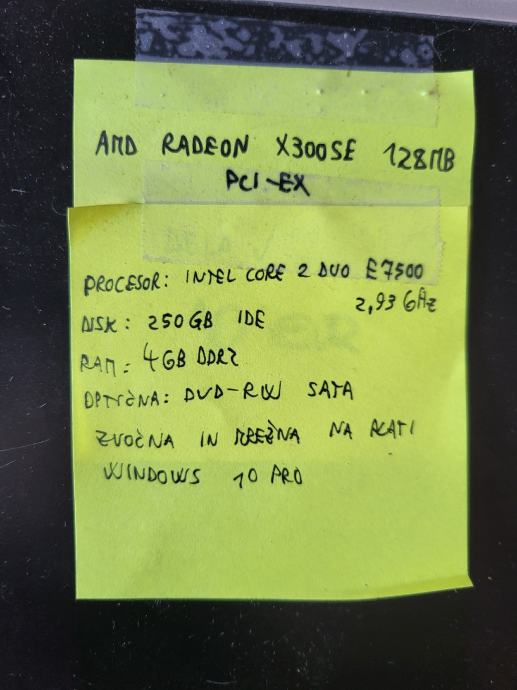 AMD RADEON X300SE 128MB
PCI-EX
PROCESOR: INTEL CORE 2 DUO E7500
2,93 GHz
DISK: 250GB IDE
RAM: 4GB DDR2
OPTIČNA: DVD-RW SATA
ZVOČNA IN MREŽNA NA PLATI
WINDOWS 10 PRO